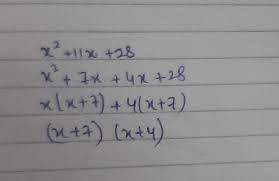 x² + 11x + 28
x² + 7x + 4x + 28
x(x+7) + 4(x+7)
(x+7) (x+4)